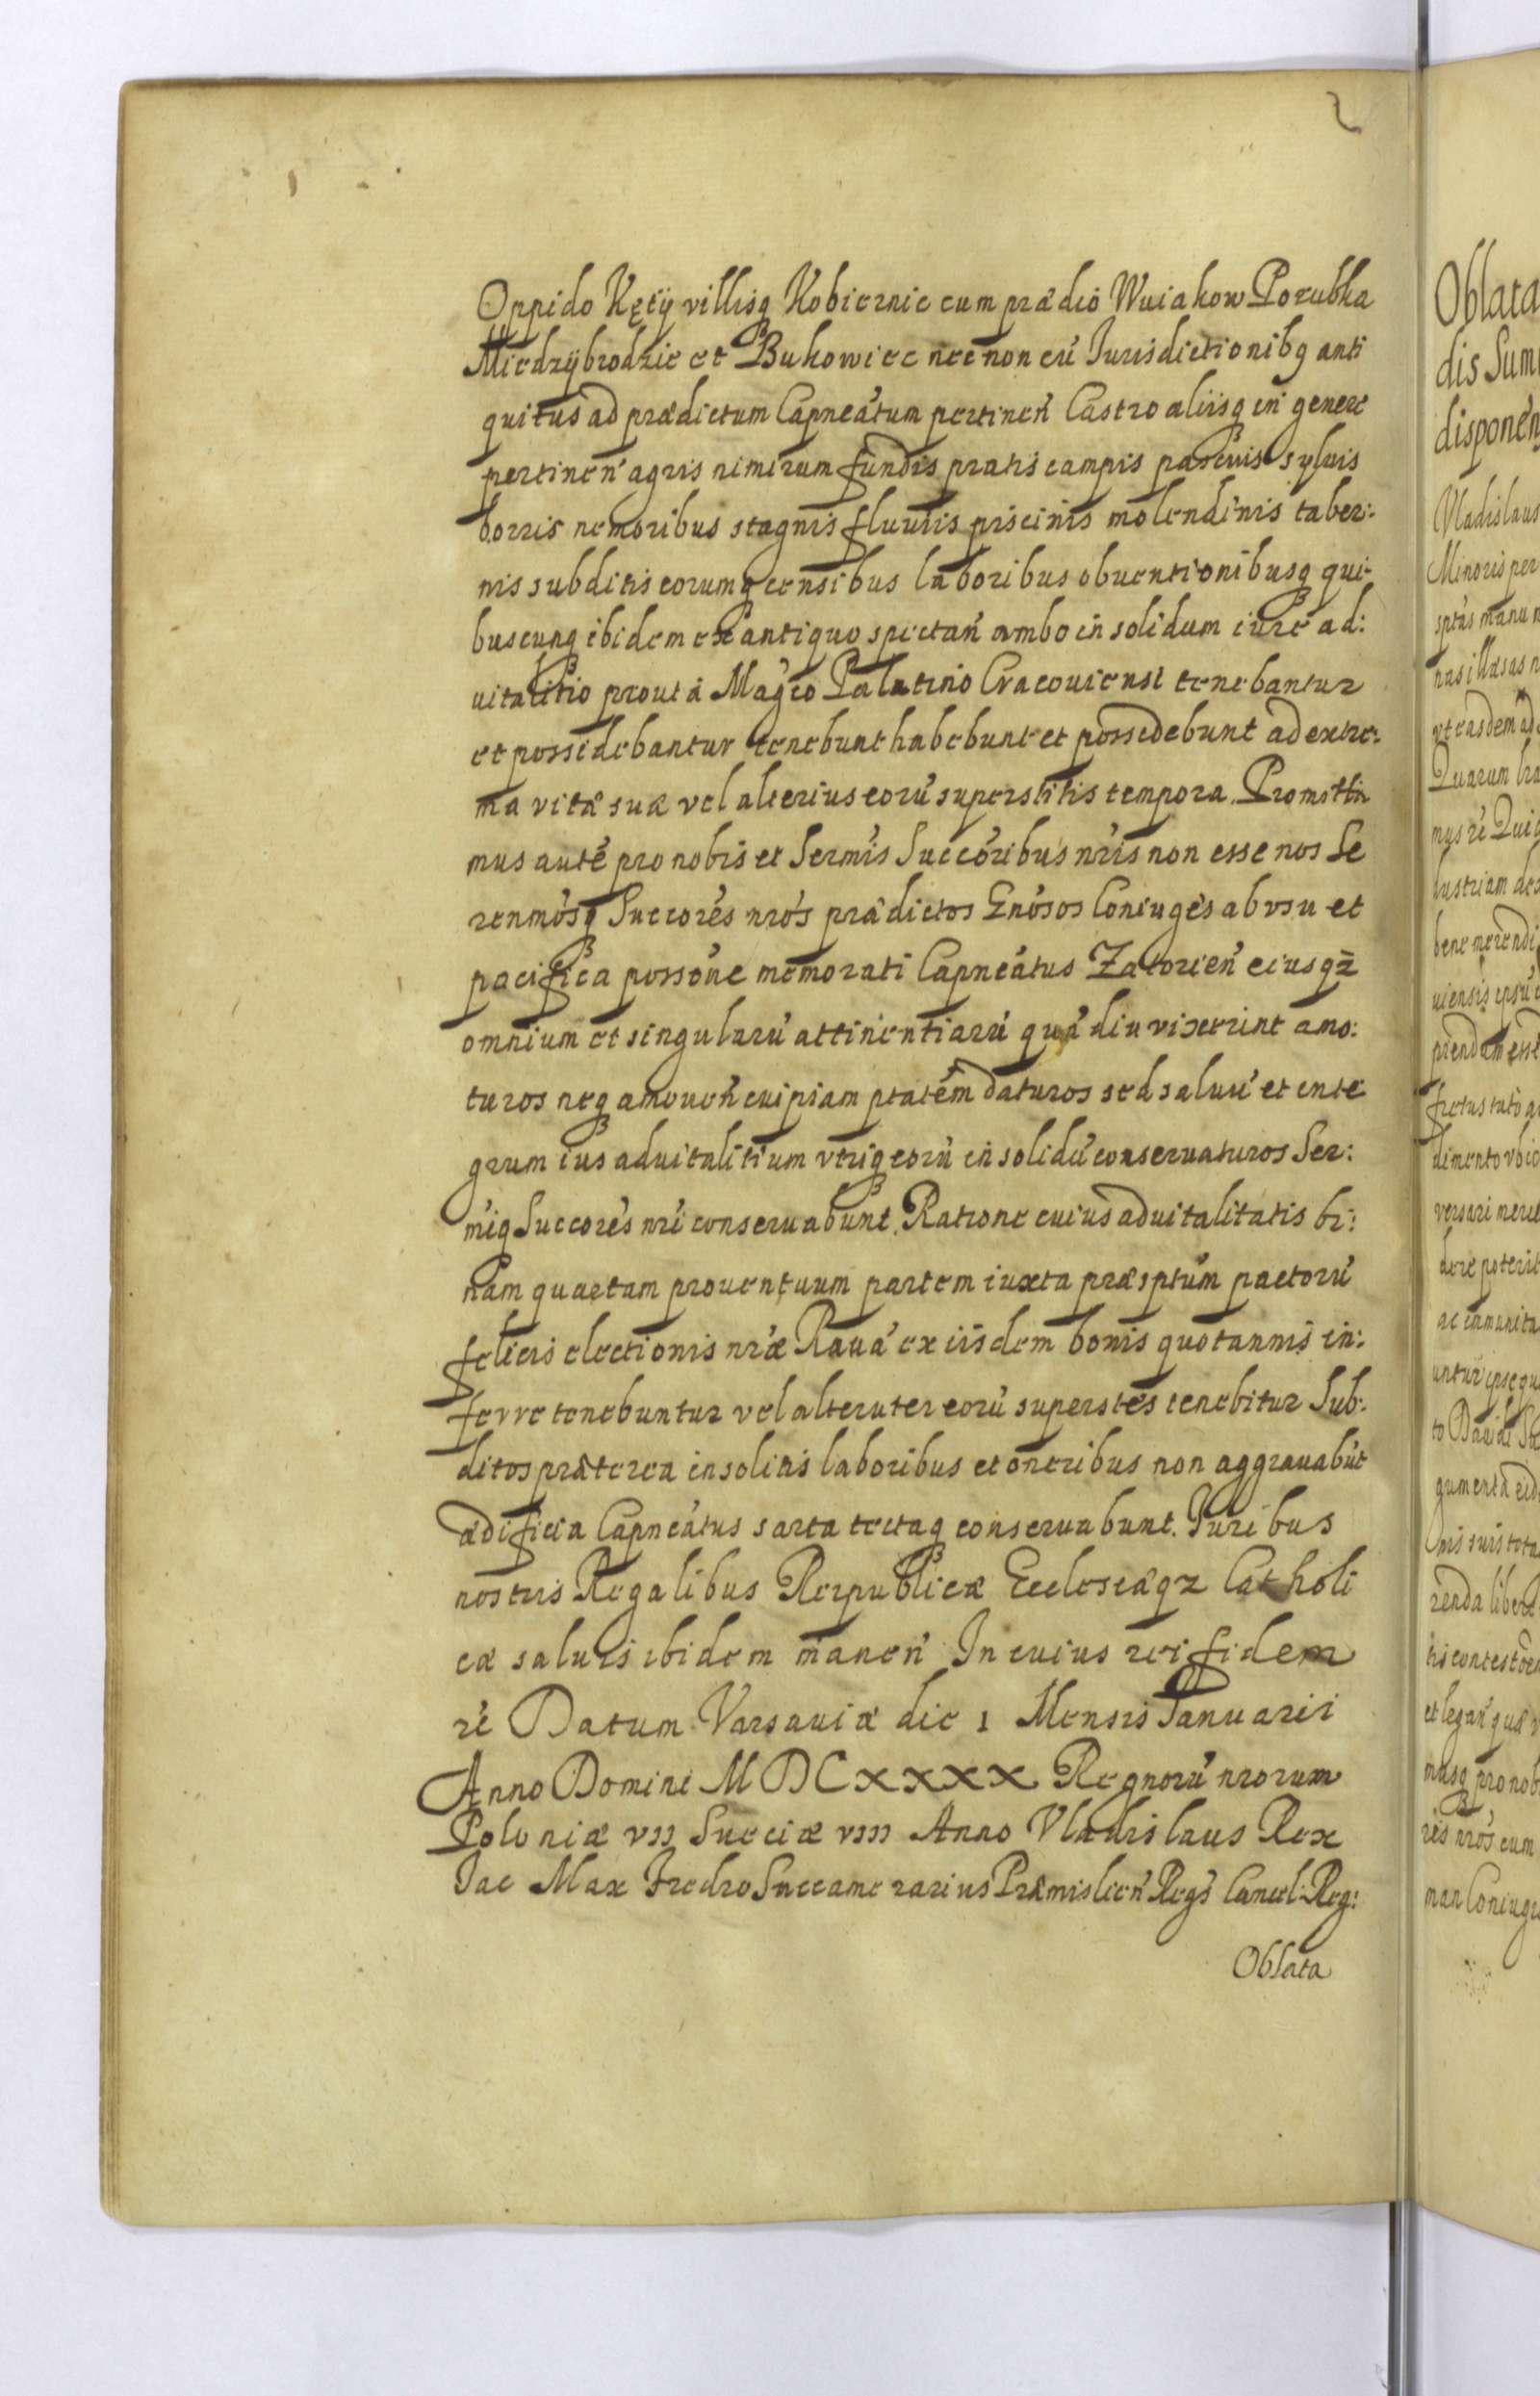 2
Oppido Kętÿ villisq Kobiernic cum prædio Wuiakow Porubka
Miedzÿbrodzie et Bukowiec necnon cū Iurisdictionibq anti
quitus ad prædictum Capneátum pertineń Castro aliisq in genere
pertineń agris nimirum fundis pratis campis pascuis syluis
borris nemoribus stagnis fluuiis piscinis molendinis taber:
nis subditis eorumq censibus laboribus obuentionibusq qui-
buscunq ibidem ex antiquo spectań ambo in solidum iure ad:
uitalitio prout á Magco Palatino Cracouiensi tenebantur
et possidebantur tenebunt habebunt et possidebunt ad extre:
ma vitæ suæ vel alterius eorū superstitis tempora. Promitti
mus autē pro nobis et Sermis Succoribus nris non esse nos Se
renmosq Succores nros prædictos Gnosos Coniuges ab vsu et
pacifica possone memorati Capneátus Zatorień eiusqz
omnium et singularū attinentiarū quā diu vixerint amo:
turos neq amoueń cuipiam ptatem daturos sed saluū et inte
grum ius aduitalitium vtriq eorū in solidū conseruaturos Ser:
miq Succores nri conseruabunt. Ratione cuius aduitalitatis bi:
nam quartam prouentuum partem iuxta præsptum pactorū
felicis electionis nræ Rauā ex iisdem bonis quotannis in:
ferre tenebuntur vel alteruter eorū superstes tenebitur Sub:
ditos præterea insolitis laboribus et oneribus non aggrauabūt
ædificia Capneátus sarta tectaq conseruabunt. Iuribus
nostris Regalibus Reipublicæ Ecclesiæqz Catholi
cæ saluis ibidem maneń In cuius rei fidem
rē Datum Varsauiæ die 1 Mensis Ianuarii
Anno Domini MDCXXXX Regnorū nrorum
Poloniæ VII Sueciæ VIII Anno Vladislaus Rex
Iac Max Fredro Succamerarius Præmislień Regs Cancel: Reg:
Oblata
Oblata
dis Sum
disponen
Vladislaus
Minoris per
sptas manu
nas illæsas
vt easdem ad
Quarum
mus rē Qui
dustriam
bene merendi
uiensis ipsū
prendam esse
fretus tuto
limento vbi
versari
dere poterit
ac inmunita
untur ipse qu
to Dauidi
gumenta eid
nis suis tota
renda libere
his contestoen
et legań quæ
musq pro nob
res nros cum
man Coniuge